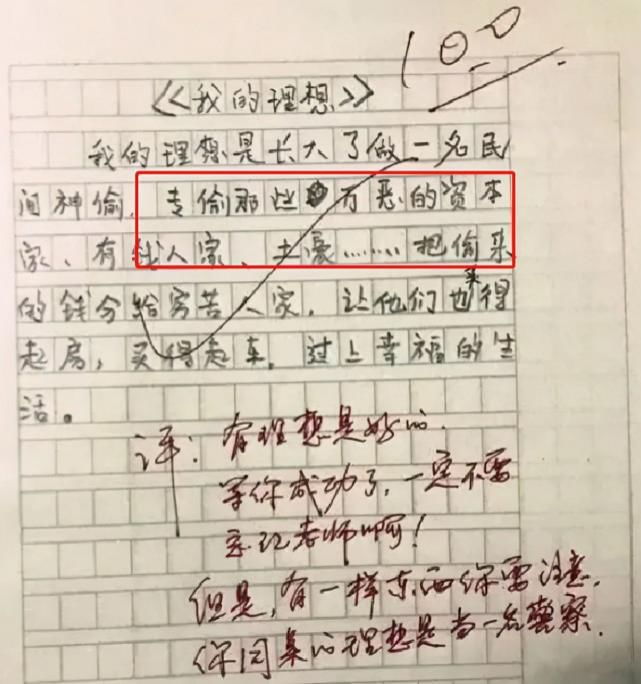 100
《我的理想》
我的理想是长大了做一名民
间神偷，专偷那些万恶的资本
家、有钱人家、土豪……把偷来
的钱分给穷苦人家，让他们也买得
起房，买得起车，过上幸福的生
活。
评：有理想是好的.
等你成功了，一定不要
忘记老师啊！
但是，有一样东西你需注意，
你同桌的理想是当一名警察.